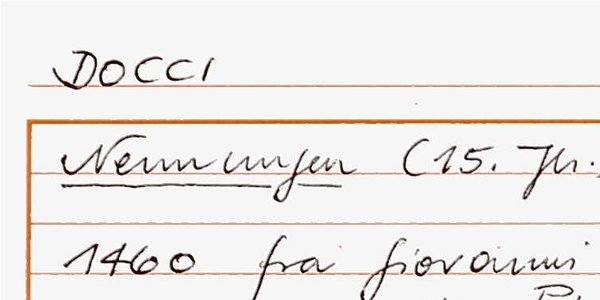 DOCCI
Nennungen (15. Jh.
1460 fra Giovanni